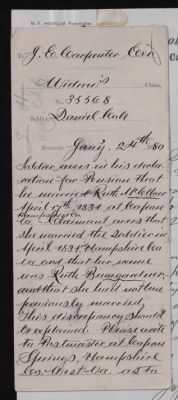 To
J. E. Carpenter Esq
Widow's Claim,
No. 35568
Soldier, Daniel Cole
Jany. 24th 80
Soldier avers in his decla-
ration for Pension that
he married Ruth
April 17th 1831. at Capon
Hampshire Co
Va. Claimant avers that
she married the Soldier in
April 1831. Hampshire Co.
Va but that her name
was Ruth Bumgardner,
and that she had not been
previously married
This discrepancy should
be explained. Please write
to Postmaster at Capon
Springs, Hampshire
Co. West Va. as to